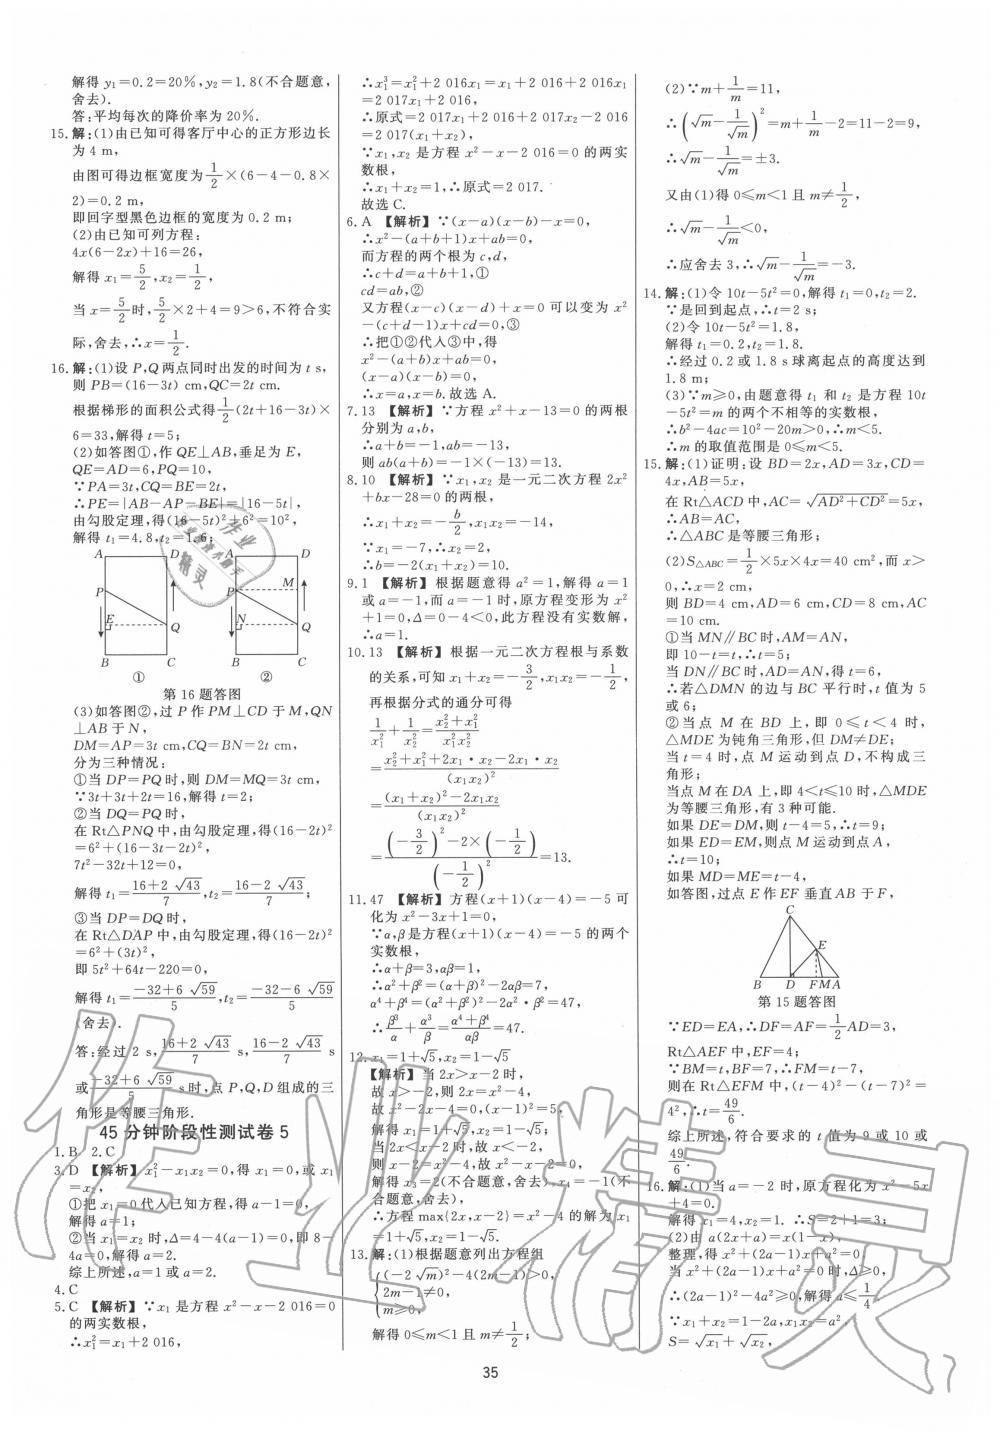 解得 y₁=0.2=20%,y₂=1.8(不合题意,
舍去).
答:平均每次的降价率为 20%.
15.解:(1)由已知可得客厅中心的正方形边长
为 4 m,
由图可得边框宽度为1/2×(6-4-0.8×
2)=0.2 m,
即回字型黑色边框的宽度为 0.2 m;
(2)由已知可列方程:
4x(6-2x)+16=26,
解得 x₁=5/2,x₂=1/2,
当 x=5/2时,5/2×2+4=9>6,不符合实
际,舍去,∴x=1/2.
16.解:(1)设 P,Q 两点同时出发的时间为 t s,
则 PB=(16-3t) cm,QC=2t cm.
根据梯形的面积公式得1/2(2t+16-3t)×
6=33,解得 t=5;
(2)如答图①,作 QE⊥AB,垂足为 E,
QE=AD=6,PQ=10,
∵PA=3t,CQ=BE=2t,
∴PE=|AB-AP-BE|=|16-5t|,
由勾股定理,得(16-5t)²+6²=10²,
解得 t₁=4.8,t₂=1.6;
A D A D
P P M
E Q N Q
B C B C
① ②
第 16 题答图
(3)如答图②,过 P 作 PM⊥CD 于 M,QN
⊥AB 于 N,
DM=AP=3t cm,CQ=BN=2t cm,
分为三种情况:
①当 DP=PQ 时,则 DM=MQ=3t cm,
∵3t+3t+2t=16,解得 t=2;
②当 DQ=PQ 时,
在 Rt△PNQ 中,由勾股定理,得(16-2t)²
=6²+(16-3t-2t)²,
7t²-32t+12=0,
解得 t₁=(16+2√43)/7,t₂=(16-2√43)/7;
③当 DP=DQ 时,
在 Rt△DAP 中,由勾股定理,得(16-2t)²
=6²+(3t)²,
即 5t²+64t-220=0,
解得 t₁=(-32+6√59)/5,t₂=(-32-6√59)/5
(舍去).
答:经过 2 s,(16+2√43)/7 s,(16-2√43)/7 s
或(-32+6√59)/5 s时,点 P,Q,D 组成的三
角形是等腰三角形.
45 分钟阶段性测试卷 5
1.B 2.C
3.D 【解析】x₁²-x₁x₂=0,得 x₁=0,或 x₁
=x₂,
①把 x₁=0代入已知方程,得 a-1=0,
解得 a=1;
②当 x₁=x₂ 时,Δ=4-4(a-1)=0,即 8-
4a=0,解得 a=2.
综上所述,a=1 或 a=2.
4.C
5.C 【解析】∵x₁ 是方程 x²-x-2 016=0
的两实数根,
∴x₁²=x₁+2 016,
∴x₁³=x₁²+2 016x₁=x₁+2 016+2 016x₁
=2 017x₁+2 016,
∴原式=2 017x₁+2 016+2 017x₂-2 016
=2 017(x₁+x₂),
∵x₁,x₂ 是方程 x²-x-2 016=0 的两实
数根,
∴x₁+x₂=1,∴原式=2 017.
故选 C.
6.A 【解析】∵(x-a)(x-b)-x=0,
∴x²-(a+b+1)x+ab=0,
而方程的两个根为 c,d,
∴c+d=a+b+1,①
cd=ab,②
又方程(x-c)(x-d)+x=0 可以变为 x²
-(c+d-1)x+cd=0,③
∴把①②代入③中,得
x²-(a+b)x+ab=0,
(x-a)(x-b)=0,
∴x=a,x=b.故选 A.
7.13 【解析】∵方程 x²+x-13=0 的两根
分别为 a,b,
∴a+b=-1,ab=-13,
则 ab(a+b)=-1×(-13)=13.
8.10 【解析】∵x₁,x₂ 是一元二次方程 2x²
+bx-28=0 的两根,
∴x₁+x₂=-b/2,x₁x₂=-14,
∵x₁=-7,∴x₂=2,
∴b=-2(x₁+x₂)=10.
9.1 【解析】根据题意得 a²=1,解得 a=1
或 a=-1,而 a=-1 时,原方程变形为 x²
+1=0,Δ=0-4<0,此方程没有实数解,
∴a=1.
10.13 【解析】根据一元二次方程根与系数
的关系,可知 x₁+x₂=-3/2,x₁x₂=-1/2,
再根据分式的通分可得
1/x₁²+1/x₂²=(x₂²+x₁²)/(x₁²x₂²)
=(x₂²+x₁²+2x₁·x₂-2x₁·x₂)/(x₁x₂)²
=((x₁+x₂)²-2x₁x₂)/(x₁x₂)²
=((-3/2)²-2×(-1/2))/(-1/2)²=13.
11.47 【解析】方程(x+1)(x-4)=-5 可
化为 x²-3x+1=0,
∵α,β是方程(x+1)(x-4)=-5 的两个
实数根,
∴α+β=3,αβ=1,
∴α²+β²=(α+β)²-2αβ=7,
α⁴+β⁴=(α²+β²)²-2α²·β²=47,
∴β³/α+α³/β=(α⁴+β⁴)/αβ=47.
12.x₁=1+√5,x₂=1-√5
【解析】当 2x>x-2 时,
故 x>-2,则 2x=x²-4,
故 x²-2x-4=0,
解得 x₁=1+√5,x₂=1-√5;
当 2x<x-2 时,故 x<-2,
则 x-2=x²-4,故 x²-x-2=0,
解得 x₃=2(不合题意,舍去),x₄=-1(不
合题意,舍去),
∴方程 max{2x,x-2}=x²-4 的解为 x₁
=1+√5,x₂=1-√5.
13.解:(1)根据题意列出方程组
{(-2√m)²-4(2m-1)>0,
2m-1≠0,
m≥0,
解得 0≤m<1 且 m≠1/2;
(2)∵m+1/m=11,
∴(√m-1/√m)²=m+1/m-2=11-2=9,
∴√m-1/√m=±3.
又由(1)得 0≤m<1 且 m≠1/2,
∴√m-1/√m<0,
∴应舍去 3,∴√m-1/√m=-3.
14.解:(1)令 10t-5t²=0,解得 t₁=0,t₂=2.
∵是回到起点,∴t=2 s;
(2)令 10t-5t²=1.8,
解得 t₁=0.2,t₂=1.8.
∴经过 0.2 或 1.8 s 球离起点的高度达到
1.8 m;
(3)∵m≥0,由题意得 t₁ 和 t₂ 是方程 10t
-5t²=m 的两个不相等的实数根,
∴b²-4ac=10²-20m>0,∴m<5.
∴m 的取值范围是 0≤m<5.
15.解:(1)证明:设 BD=2x,AD=3x,CD=
4x,AB=5x,
在 Rt△ACD 中,AC=√(AD²+CD²)=5x,
∴AB=AC,
∴△ABC 是等腰三角形;
(2)S△ABC=1/2×5x×4x=40 cm²,而 x>
0,∴x=2 cm,
则 BD=4 cm,AD=6 cm,CD=8 cm,AC
=10 cm.
①当 MN∥BC 时,AM=AN,
即 10-t=t,∴t=5;
当 DN∥BC 时,AD=AN,得 t=6,
∴若△DMN 的边与 BC 平行时,t 值为 5
或 6;
②当点 M 在 BD 上,即 0≤t<4 时,
△MDE 为钝角三角形,但 DM≠DE;
当 t=4 时,点 M 运动到点 D,不构成三
角形;
当点 M 在 DA 上,即 4<t≤10 时,△MDE
为等腰三角形,有 3 种可能.
如果 DE=DM,则 t-4=5,∴t=9;
如果 ED=EM,则点 M 运动到点 A,
∴t=10;
如果 MD=ME=t-4,
如答图,过点 E 作 EF 垂直AB 于 F,
C
E
B D FMA
第 15 题答图
∵ED=EA,∴DF=AF=1/2AD=3,
Rt△AEF 中,EF=4;
∵BM=t,BF=7,∴FM=t-7,
则在 Rt△EFM 中,(t-4)²-(t-7)²=
4²,∴t=49/6.
综上所述,符合要求的 t 值为 9 或 10 或
49/6.
16.解:(1)当 a=-2 时,原方程化为 x²-5x
+4=0.
解得 x₁=4,x₂=1. ∴S=2+1=3;
(2)由 a(2x+a)=x(1-x),
整理,得 x²+(2a-1)x+a²=0
当 x²+(2a-1)x+a²=0 时,Δ≥0,
∴(2a-1)²-4a²≥0,解得 a≤1/4.
∵x₁+x₂=1-2a,x₁x₂=a²,
S=√x₁+√x₂,
35
作业精灵
作业
精灵